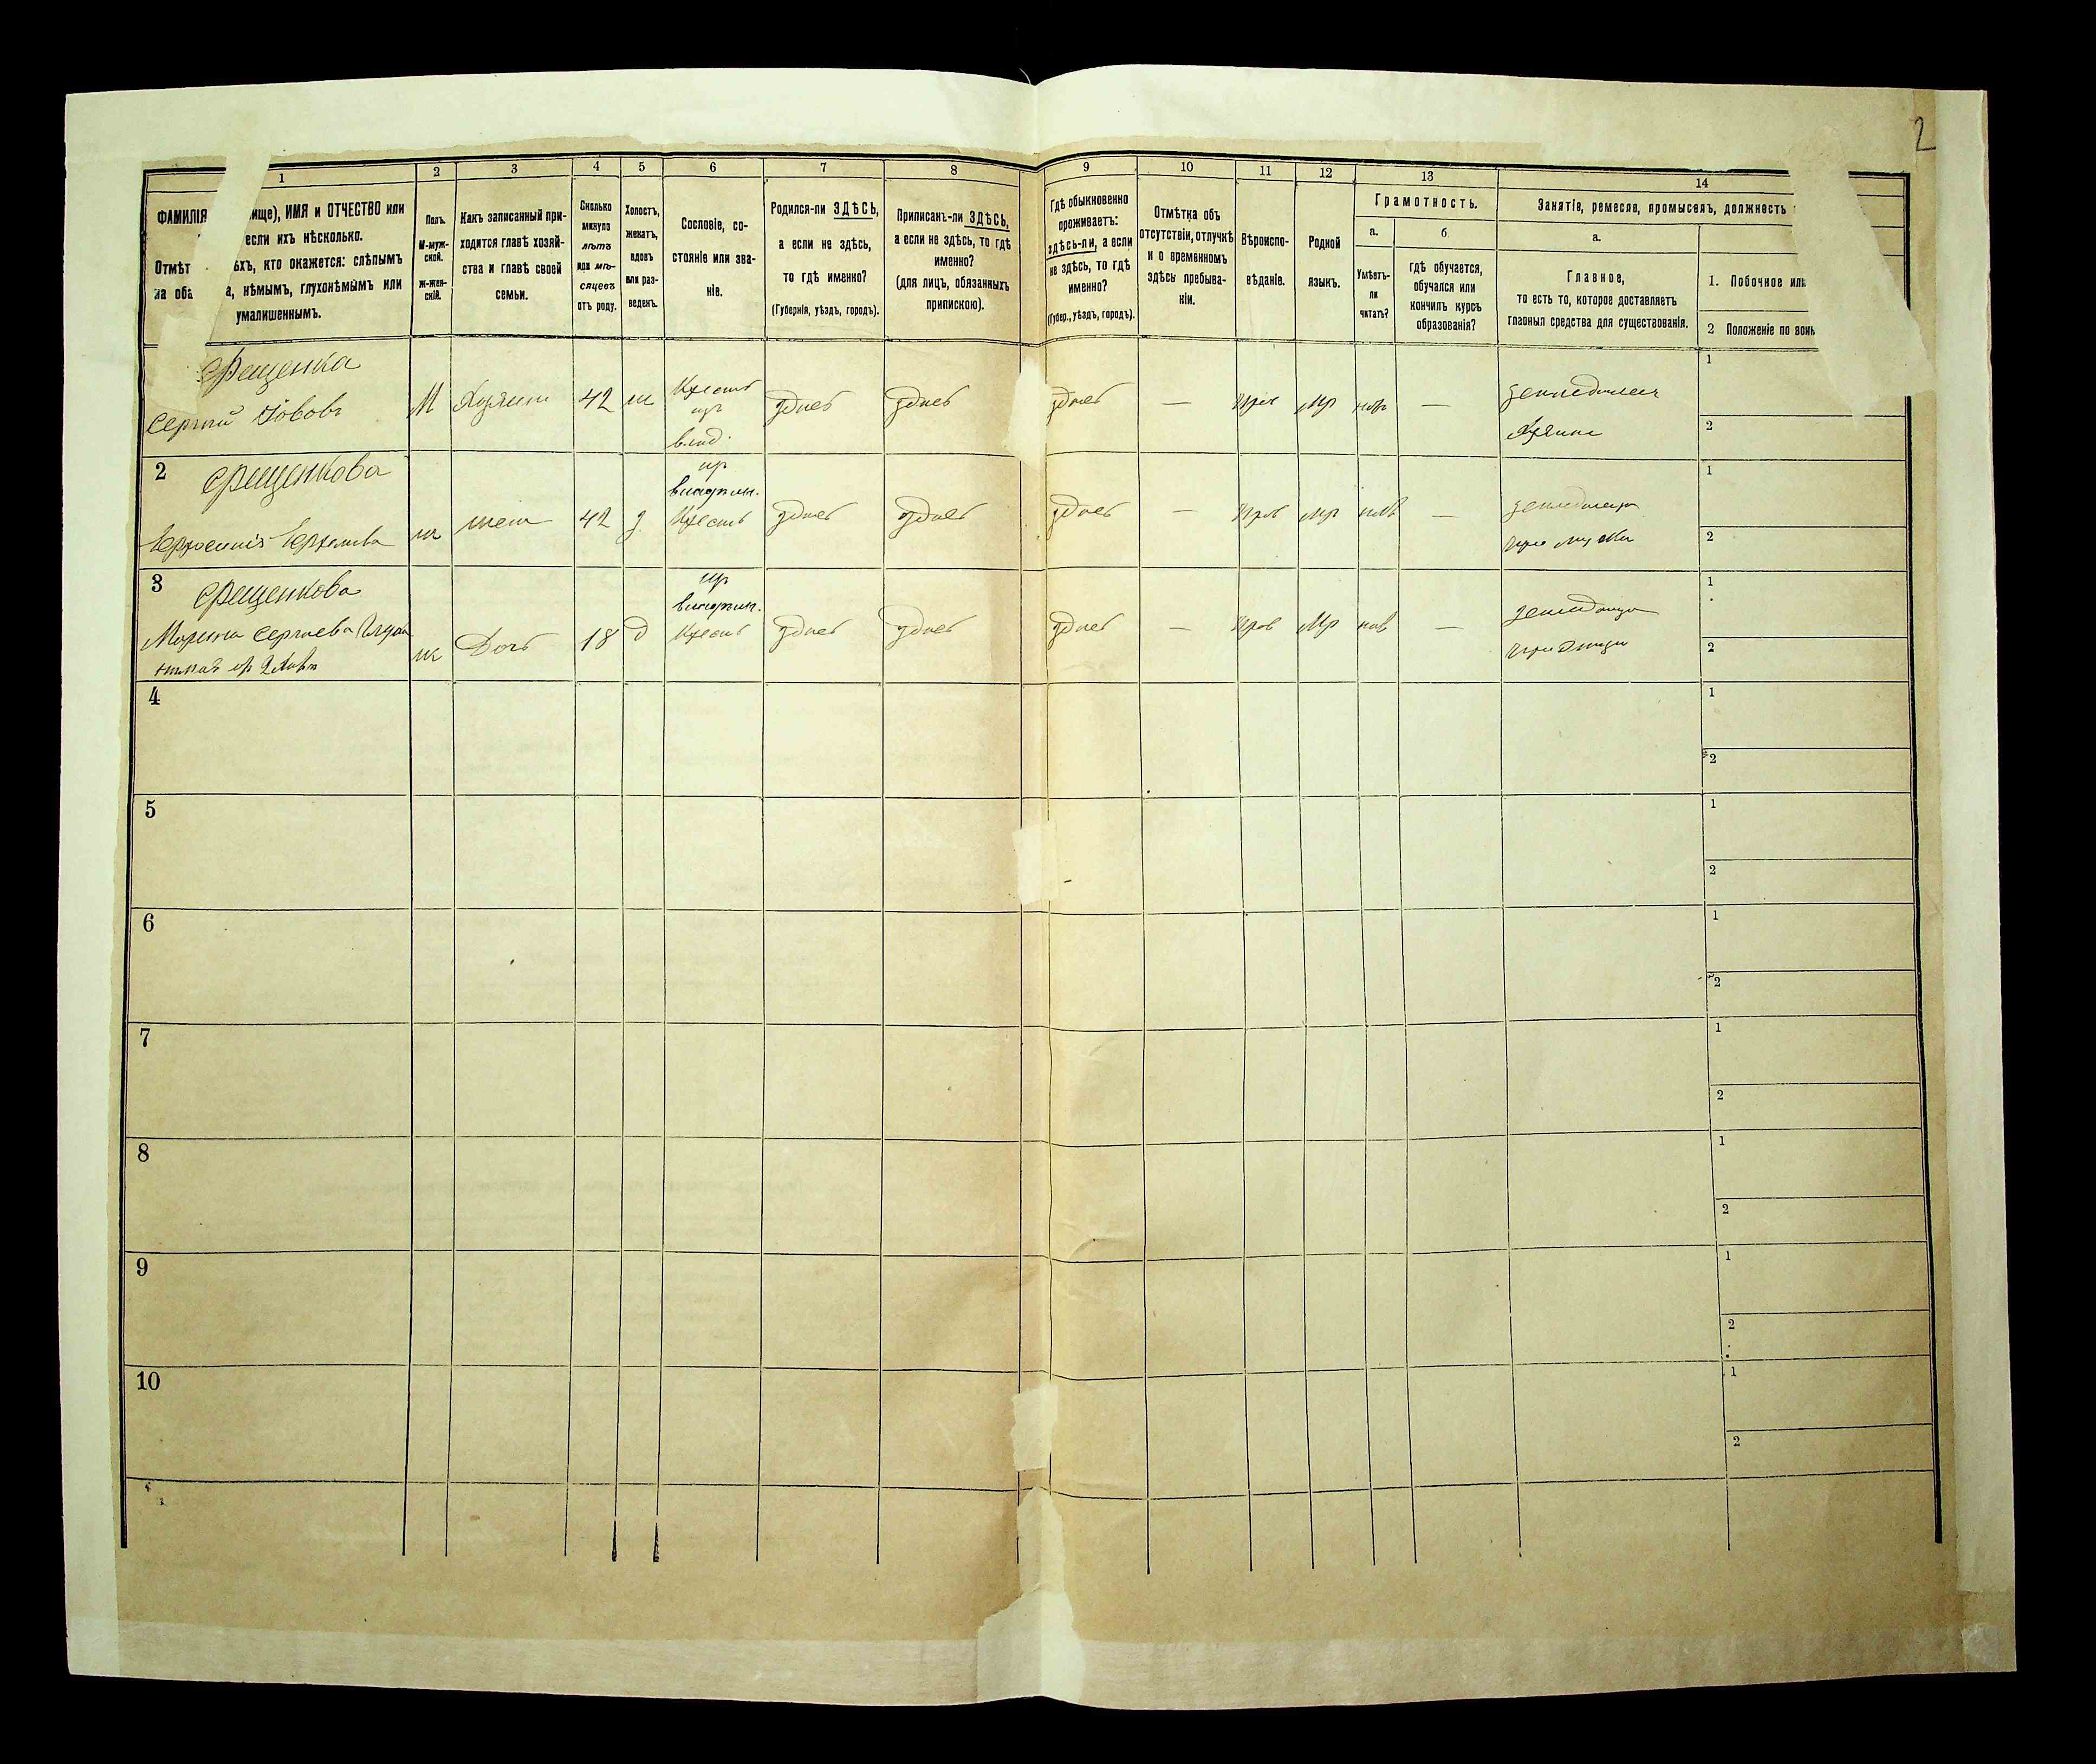 2
1 2 3 4 5 6 7 8 9 10 11 12 13 14
ФАМИЛІЯ ище), ИМЯ и ОТЧЕСТВО или
если ихъ нѣсколько.
Отмѣт ѣхъ, кто окажется: слѣпымъ
на оба а, нѣмымъ, глухонѣмымъ или
умалишеннымъ.
Полъ.
М-муж-
ской.
Ж-жен-
скій.
Какъ записанный при-
ходится главѣ хозяй-
ства и главѣ своей
семьи.
Сколько
минуло
лѣтъ
или мѣ-
сяцевъ
отъ роду.
Холостъ,
женатъ,
вдовъ
или раз-
веденъ.
Сословіе, со-
стояніе или зва-
ніе.
Родился-ли ЗДѢСЬ,
а если не здѣсь,
то гдѣ именно?
(Губернія, уѣздъ, городъ).
Приписанъ-ли ЗДѢСЬ,
а если не здѣсь, то гдѣ
именно?
(для лицъ, обязанныхъ
припискою).
Гдѣ обыкновенно
проживаетъ:
здѣсь-ли, а если
не здѣсь, то гдѣ
именно?
(Губер., уѣздъ, городъ).
Отмѣтка объ
отсутствіи, отлучкѣ
и о временномъ
здѣсь пребыва-
ніи.
Вѣроиспо-
вѣданіе.
Родной
языкъ.
Грамотность.
а. б.
Умѣетъ-
ли
читать?
гдѣ обучается,
обучался или
кончилъ курсъ
образованія?
Занятіе, ремесло, промыселъ, должность
а.
Главное,
то есть то, которое доставляетъ
главныя средства для существованія.
1. Побочное или
2 Положеніе по воин
Фещенка
Сергій Іововъ
М Хозяинъ 42 ж Крест здѣсь здѣсь здѣсь — Пра Мр — 1
Хозяинъ 2
2 Фещенкова
ж жена 42 з Крест здѣсь здѣсь здѣсь — Прав Мр — 1
при мужѣ 2
3 Фещенкова
Марина Сергіева
ж Дочь 18 д Крест здѣсь здѣсь здѣсь — Прав Мр — 1
при отцѣ 2
4 1
2
5 1
2
6 1
2
7 1
2
8 1
2
9 1
2
10 1
2